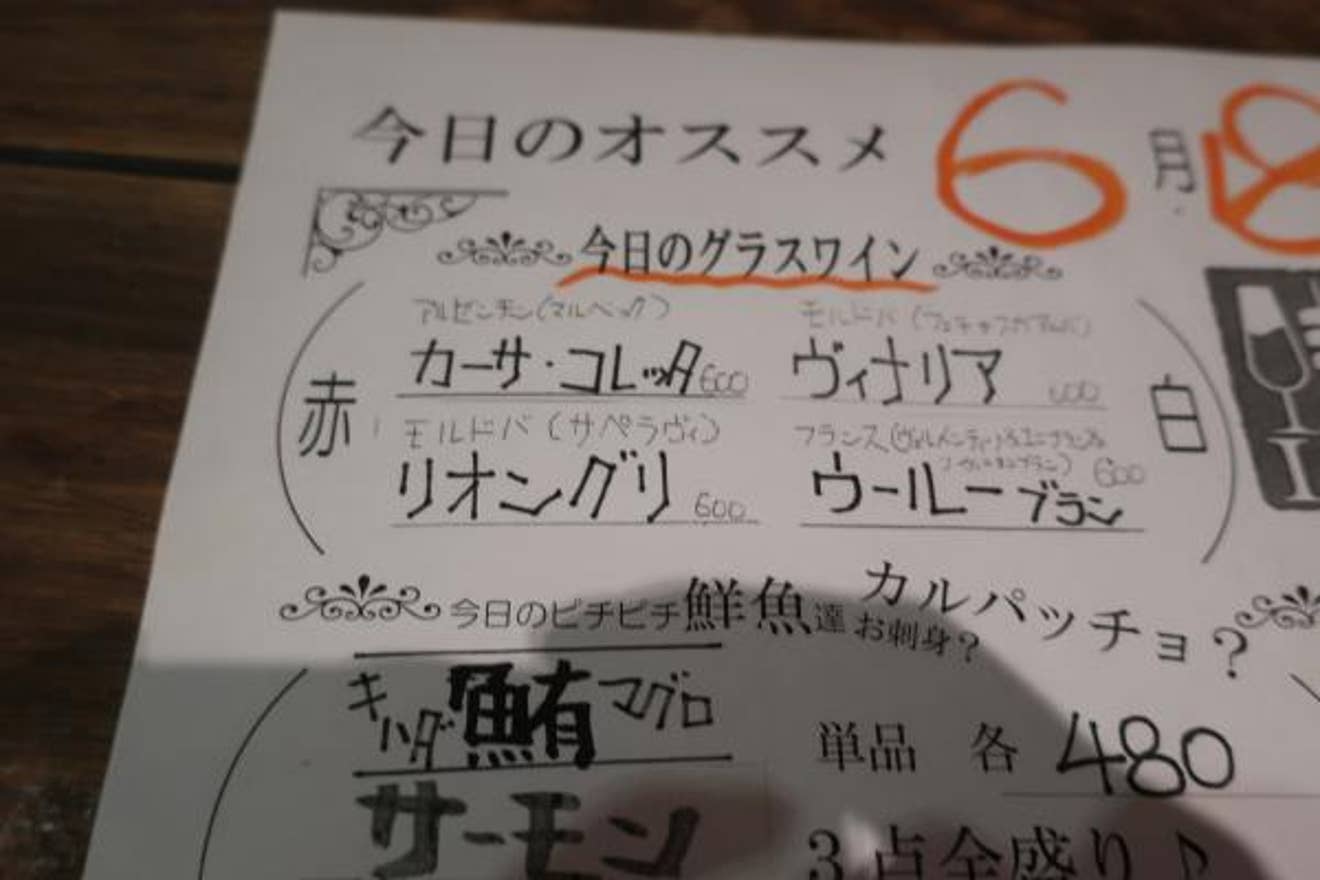 今日のオススメ 6月 8
今日のグラスワイン
赤
アルゼンチン(マルベック)
カーサ・コレッタ 600
モルドバ(サペラヴィ)
リオングリ 600
白
モルドバ
ヴィナリア 600
フランス
ウールーブラン 600
今日のピチピチ鮮魚達 お刺身? カルパッチョ?
キハダ鮪マグロ
サーモン
単品 各 480
3点全盛り♪